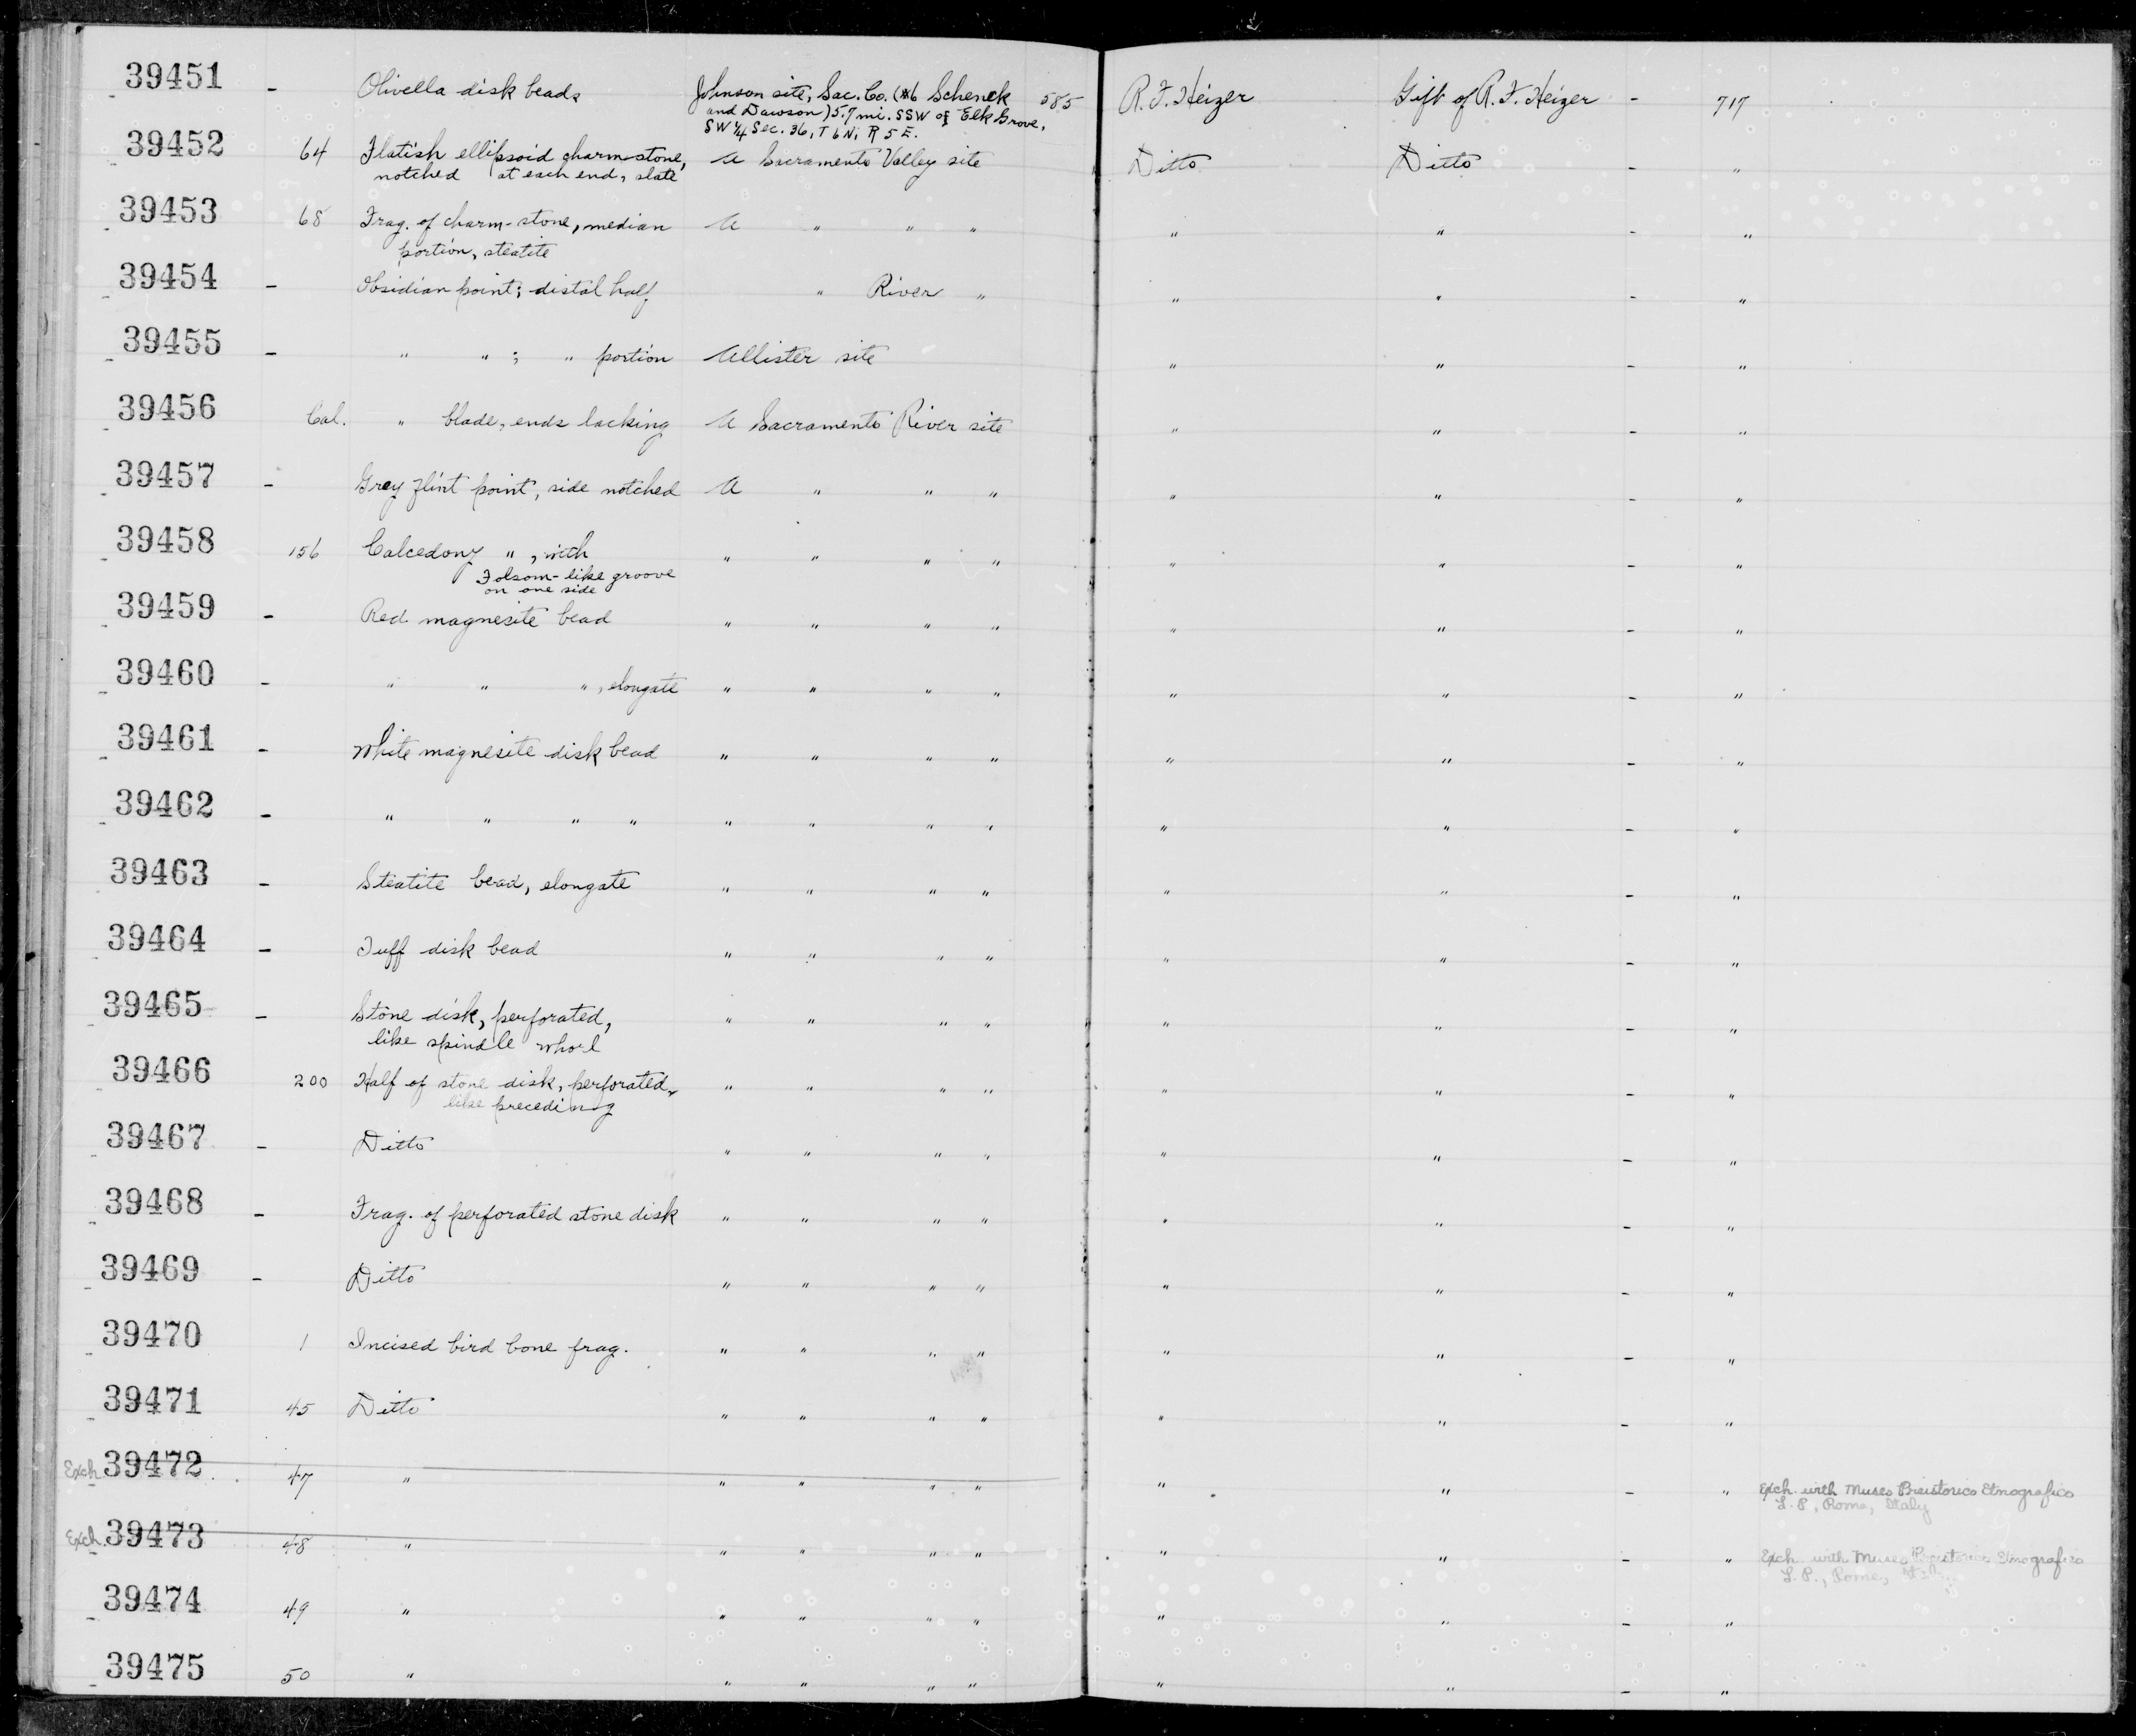 39451 - Olivella disk beads Johnson site, Sac. Co. (#6 Schenck 585 R. F. Heizer Gift of R. F. Heizer - 717
and Dawson) 5.7 mi. SSW of Elk Grove,
SW 1/4 Sec. 36, T 6 N, R 5 E.
39452 64 Flatish ellipsoid charm-stone, A Sacramento Valley site Ditto Ditto - "
notched at each end, slate
39453 68 Frag. of charm-stone, median A " " " " " - "
portion, steatite
39454 - Obsidian point; distal half " River " " " - "
39455 - " " ; " portion Allister site " " - "
39456 Cal. " blade, ends lacking A Sacramento River site " " - "
39457 - Grey flint point, side notched A " " " " " - "
39458 156 Calcedony " , with " " " " " " - "
Folsom-like groove
on one side
39459 - Red magnesite bead " " " " " " - "
39460 - " " " , elongate " " " " " " - "
39461 - White magnesite disk bead " " " " " " - "
39462 - " " " " " " " " " " - "
39463 - Steatite bead, elongate " " " " " " - "
39464 - Tuff disk bead " " " " " " - "
39465 - Stone disk, perforated, " " " " " " - "
like spindle whorl
39466 200 Half of stone disk, perforated, " " " " " " - "
like preceding
39467 - Ditto " " " " " " - "
39468 - Frag. of perforated stone disk " " " " " " - "
39469 - Ditto " " " " " " - "
39470 1 Incised bird bone frag. " " " " " " - "
39471 45 Ditto " " " " " " - "
Exch. 39472 47 " " " " " " " - " Exch. with Museo Preistorico Etnografico
L. P., Rome, Italy
Exch. 39473 48 " " " " " " " - " Exch. with Museo Preistorico Etnografico
L. P., Rome,
39474 49 " " " " " " " - "
39475 50 " " " " " " " - "